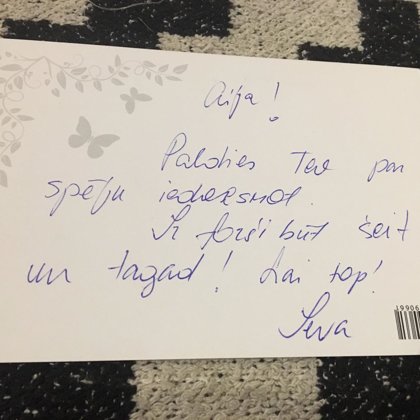 Aija!
Paldies Tev par
spēju iedvesmot.
Ir forši būt šeit
un tagad! Lai top!
Ieva
19906